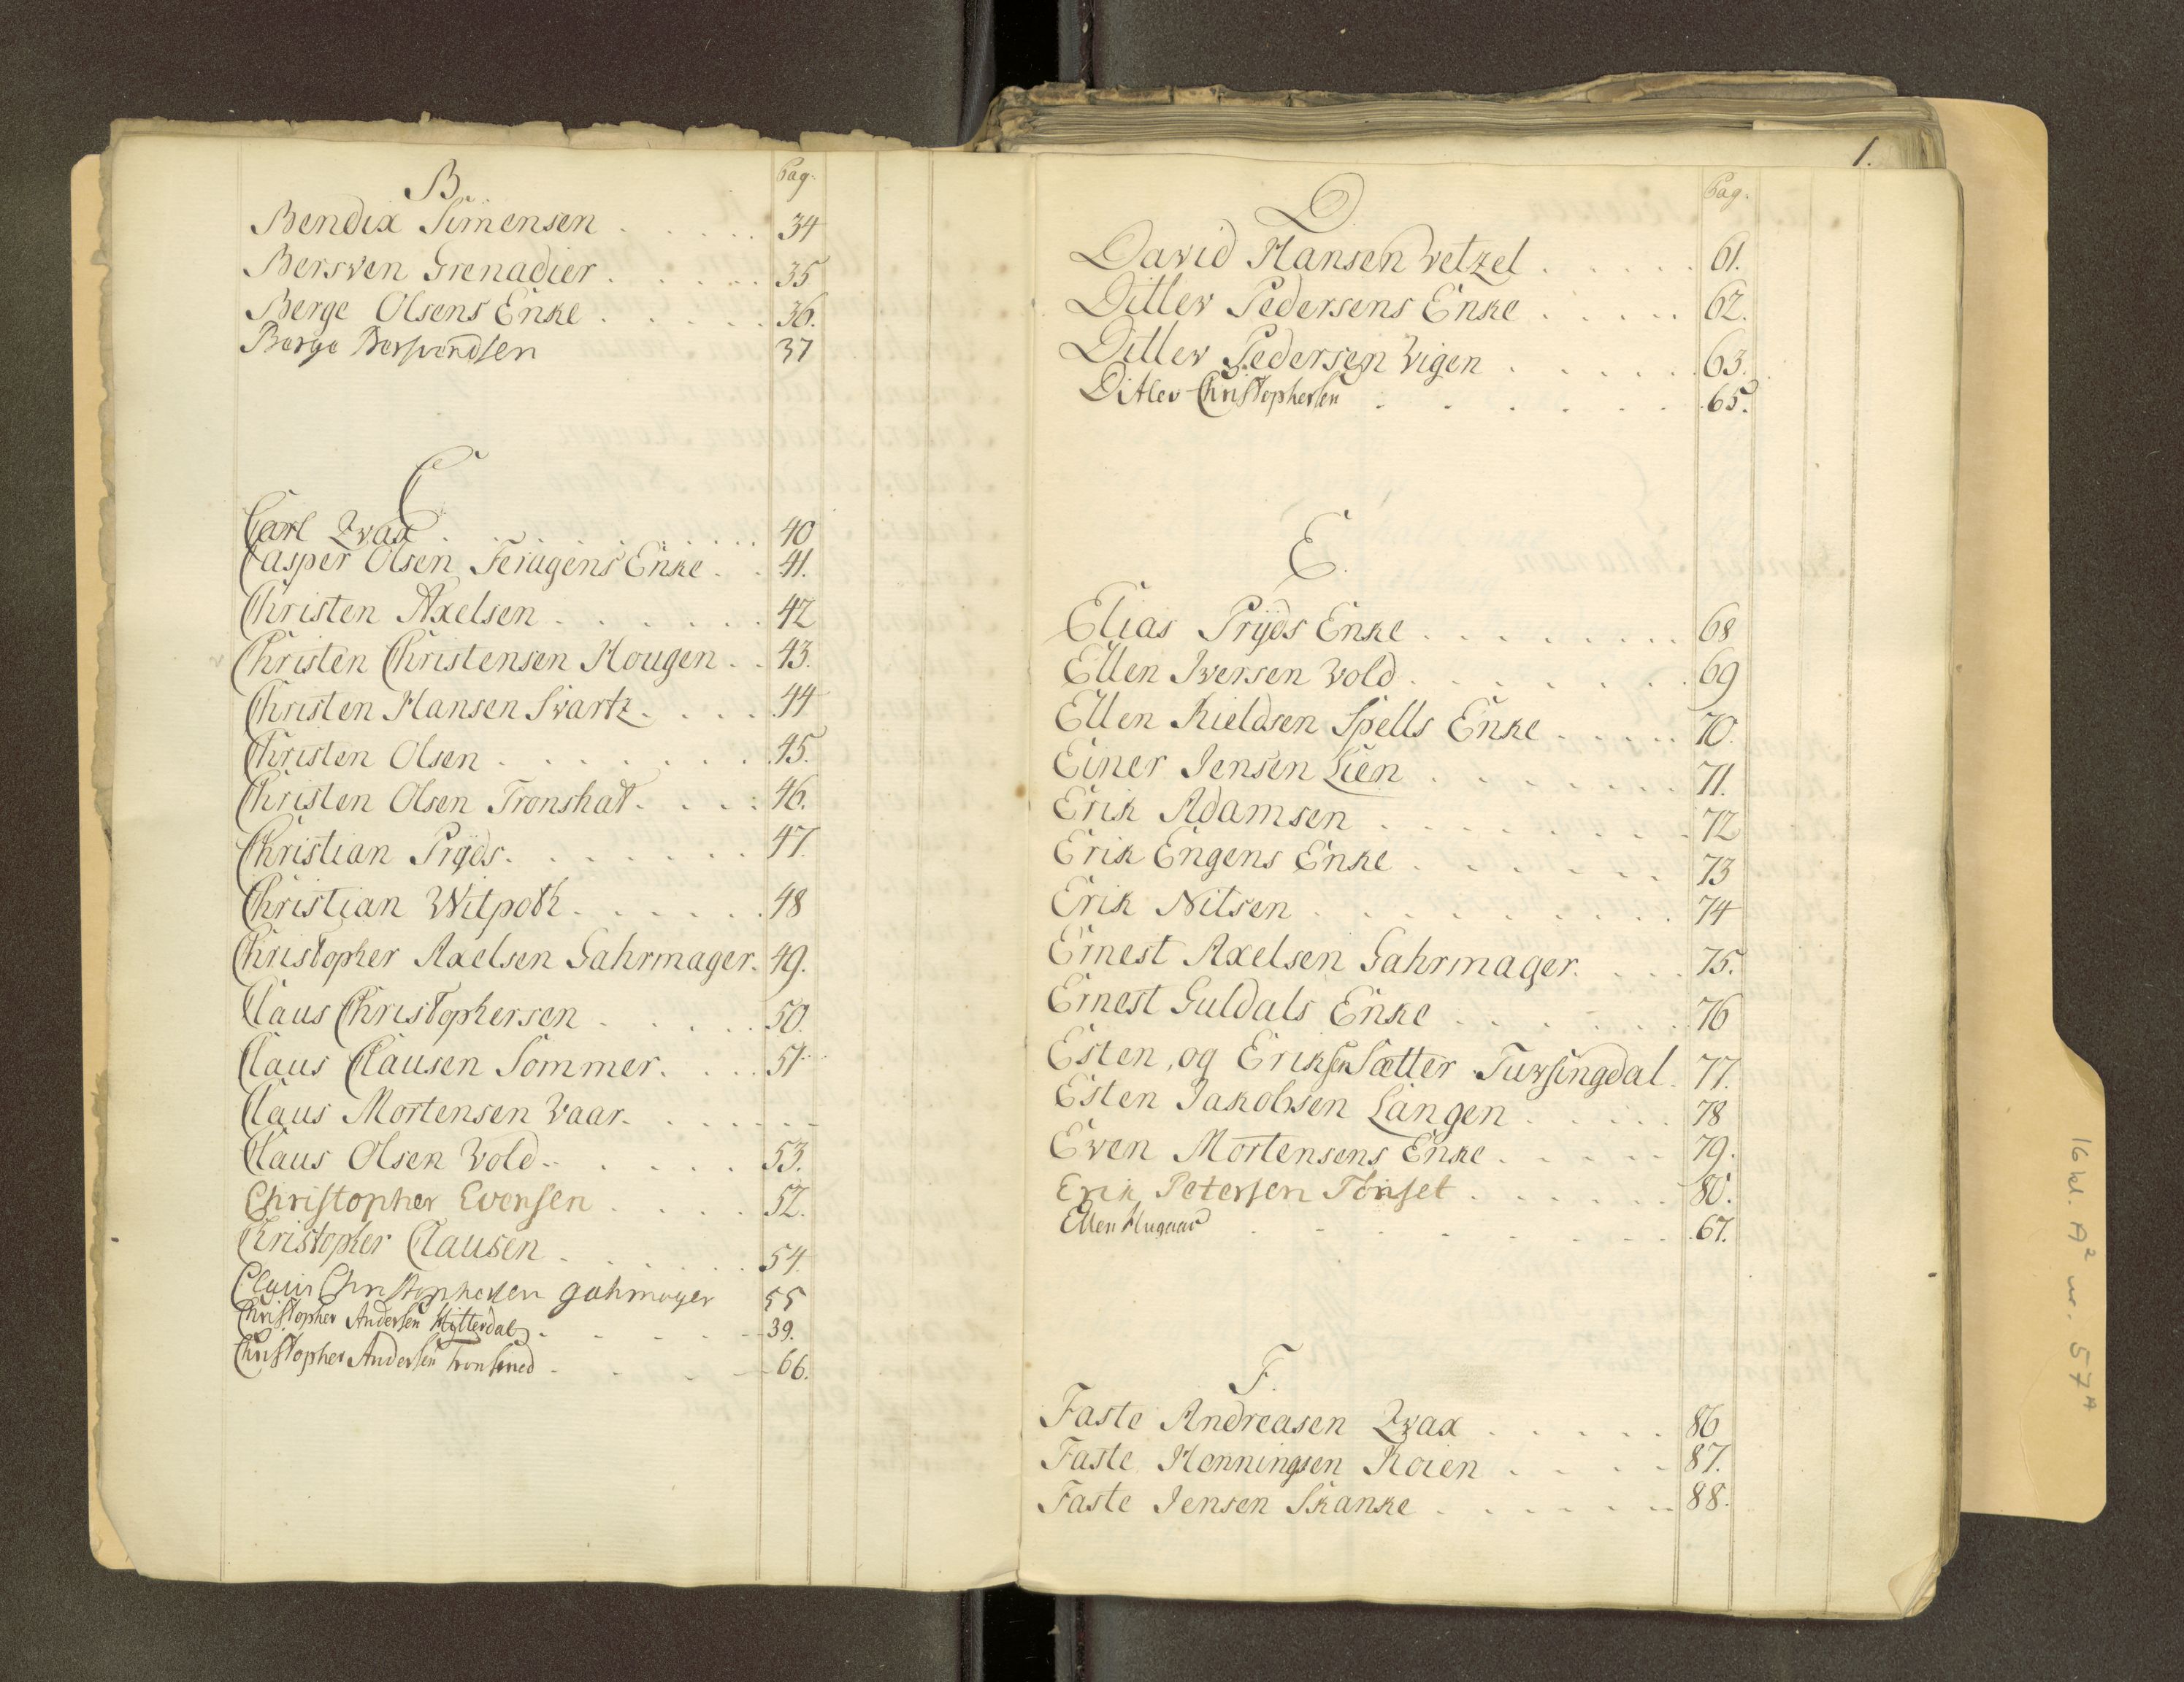 B. Pag.
Bendix Simensen . . . . . 34
Bersven Grenadier . . . . . 35
Berge Olsens Enke . . . . . 36.
Berge Bersvendsen 37
C
Carl Qvax . . . . . . . . 40
Casper Olsen Ferugens Enke . . 41.
Christen Axelsen . . . . . . 42
Christen Christensen Hougen . . 43.
Christen Hansen Svartz . . . . 44
Christen Olsen . . . . . . . 45.
Christen Olsen Tronshat . . . . 46.
Christian Prÿds . . . . . . . 47.
Christian Witpoth . . . . . . 48
Christopher Axelsen Gahrmager. 49.
Claus Christophersen . . . . . 50.
Claus Clausen Sommer . . . . 51
Claus Mortensen Vaar . . . . . . .
Claus Olsen Vold . . . . . . 53.
Christopher Evensen . . . . 52.
Christopher Clausen . . . . . . 54.
Claus Christophersen gahrmager 55
Christopher Andersen Hitterdal . . . . . 39.
Christopher Andersen Tronsmed . . . . . 66.
1.
D Pag.
David Hansen Vetzel . . . . . 61.
Ditlev Pedersens Enke . . . . . 62.
Ditlev Pedersen Vigen . . . . . 63.
Ditlev Christophersen . . . . . . . 65.
E.
Elias Prÿds Enke . . . . . . . . 68
Ellen Iversen Vold . . . . . . . 69
Ellen Kieldsen Spells Enke . . . . . 70.
Einer Jensen Lien . . . . . . . 71.
Erik Adamsen . . . . . . . . 72
Erik Engens Enke . . . . . . 73
Erik Nilsen . . . . . . . . . 74
Ernest Axelsen Gahrmager. . . . 75.
Ernest Guldals Enke . . . . . . 76
Esten, og Eriksen Sætter Tufsingdal. 77.
Esten Jakobsen Langen . . . . . 78
Even Mortensens Enke . . . . . 79.
Erik Petersen Tönset . . . . . . 80.
Ellen Hugaas . . . . . . . . 67.
F.
Faste Andreasen Qvax . . . . . 86
Faste Henningsen Koien . . . . 87.
Faste Jensen Skanke . . . . . . 88.
16 kl. A² nr. 57ᴬ